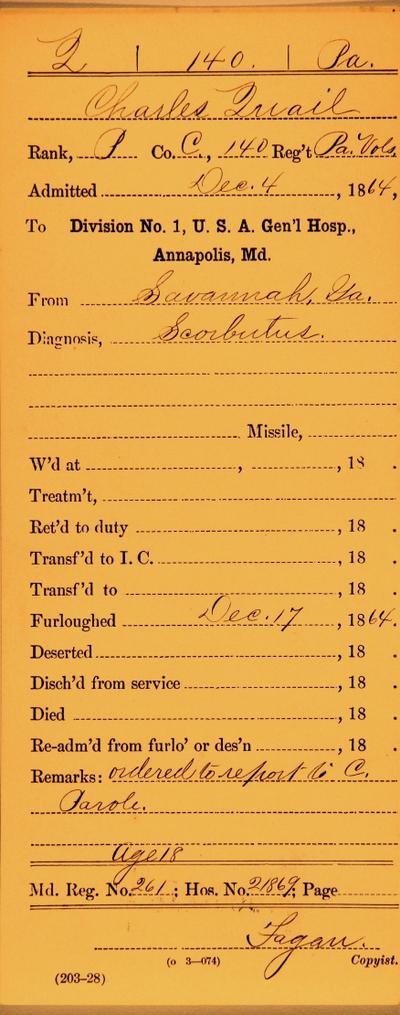 Q | 140. | Pa.
Charles Quail
Rank, P Co. C., 140 Reg't Pa. Vols.
Admitted Dec. 4, 1864,
To Division No. 1, U. S. A. Gen'l Hosp.,
Annapolis, Md.
From Savannah, Ga.
Diagnosis, Scorbutus.
Missile,
W'd at , , 18 .
Treatm't,
Ret'd to duty , 18 .
Transf'd to I. C. , 18 .
Transf'd to , 18 .
Furloughed Dec. 17, 1864.
Deserted , 18 .
Disch'd from service , 18 .
Died , 18 .
Re-adm'd from furlo' or des'n , 18 .
Remarks: ordered to report to C.
Parole.
Age 18
Md. Reg. No. 261; Hos. No. 21869; Page
Fagan.
(o 3—074) Copyist.
(203-28)